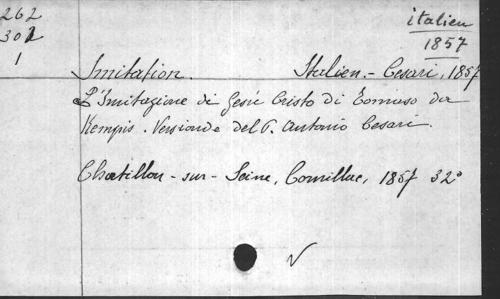 262
301
1
italien
1857
Imitation. Italien. - Cesari, 1857
L'Imitazione di Gesù Cristo di Tomaso da
Kempis. Versione del P. Antonio Cesari.
Chatillon-sur-Seine, Cornillac, 1857 32°